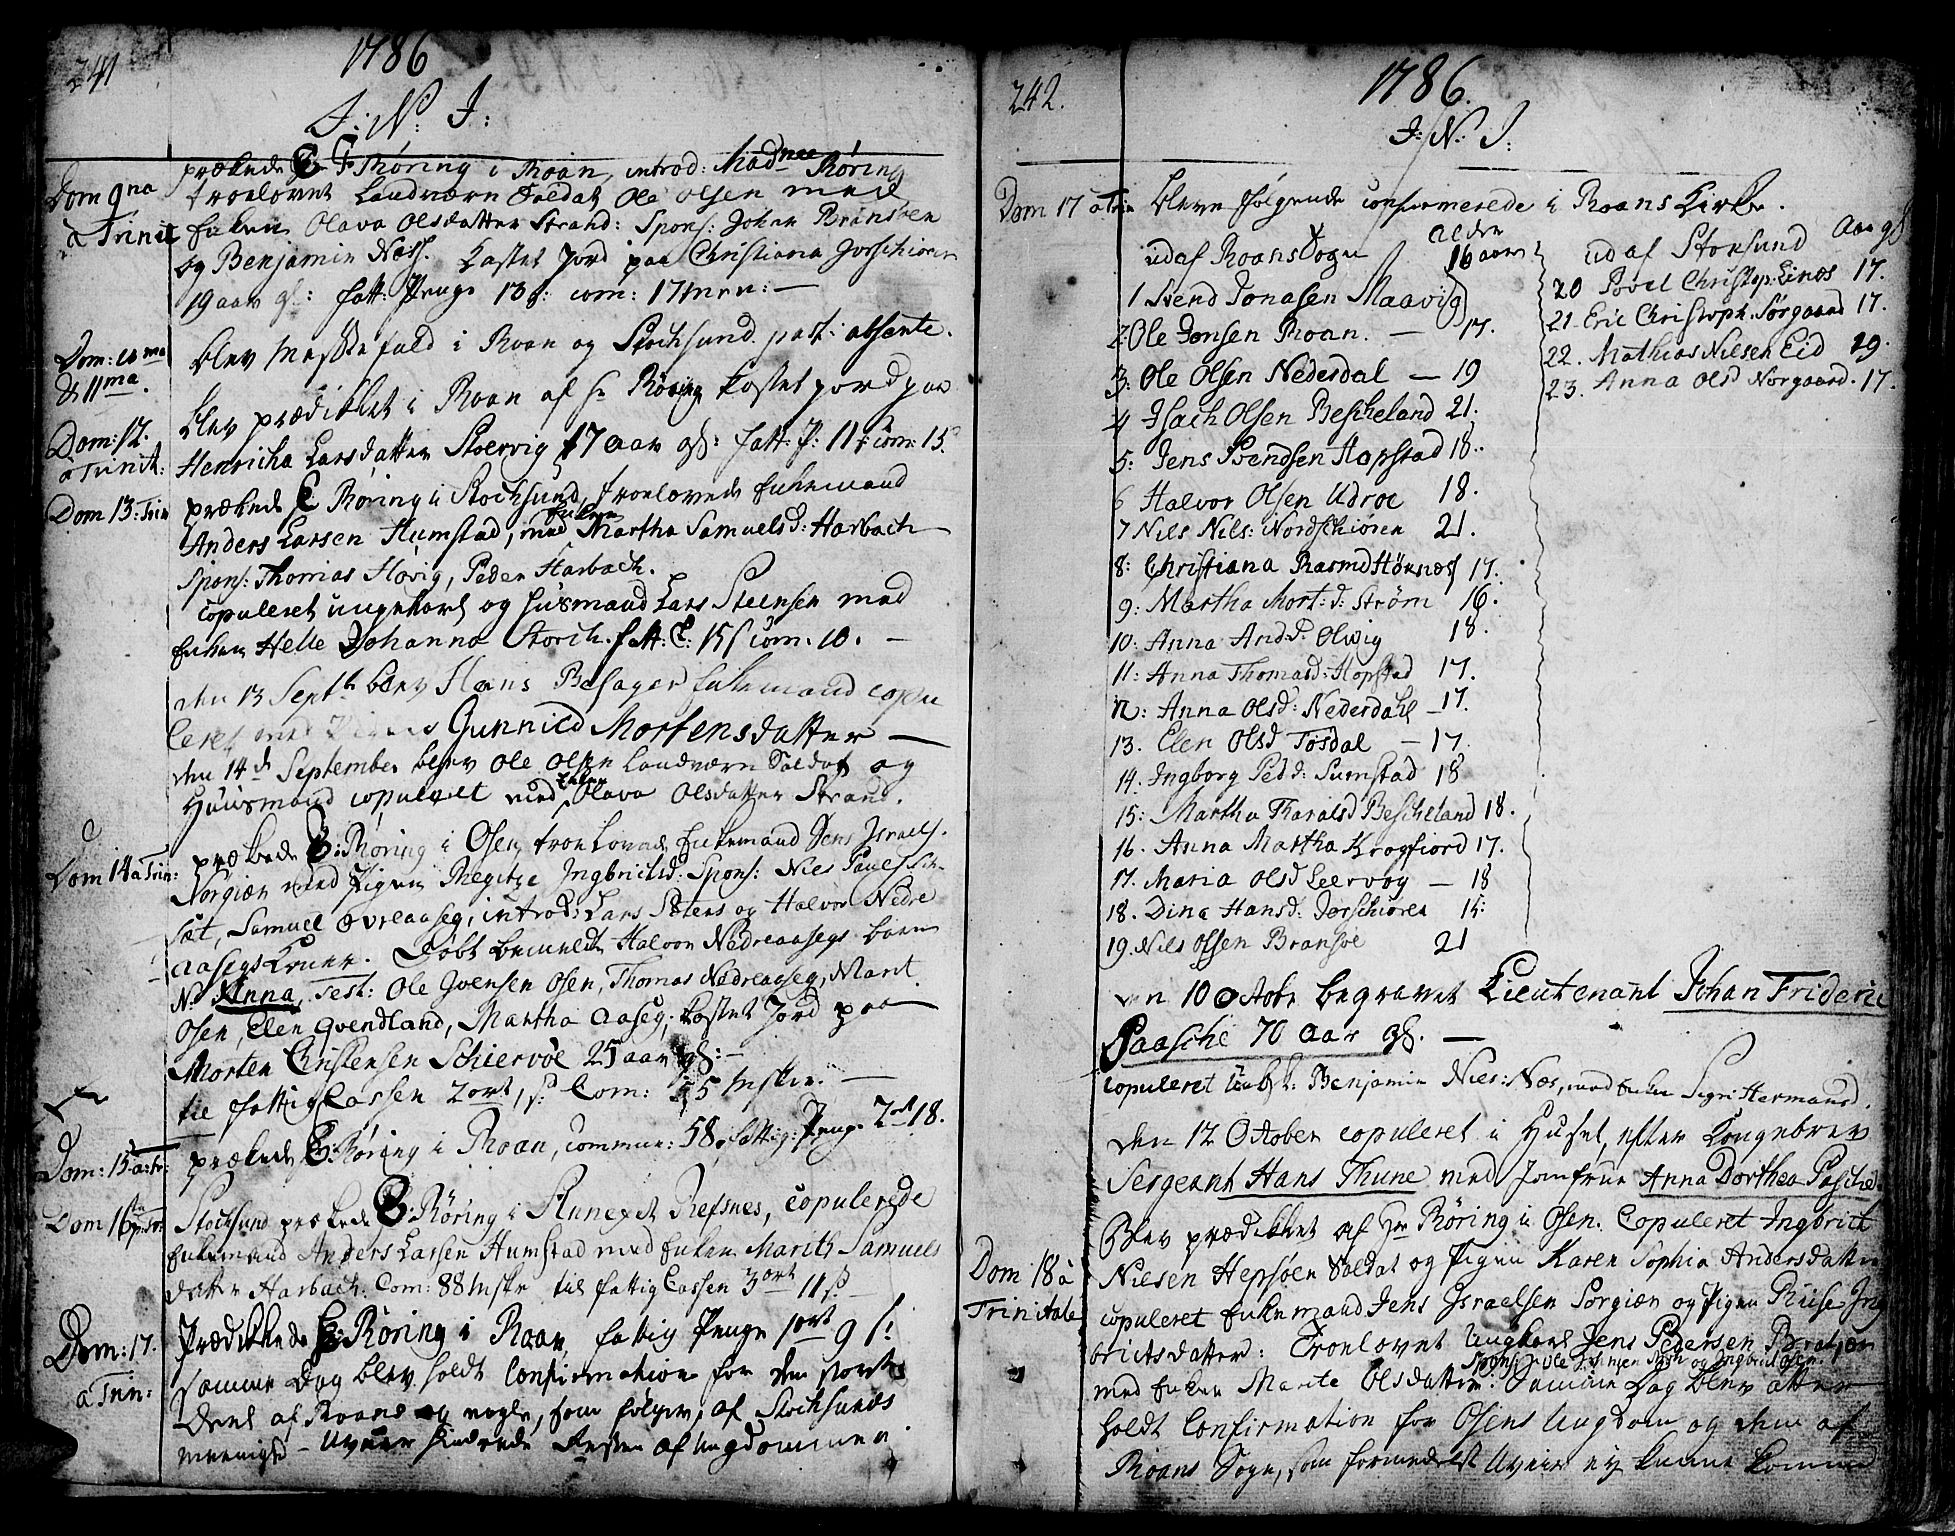 241
1786
I: N: I:
Dom 9na
a Trinit
prækede E F Røring i Roan, introd: Madnee Røring
troelovet Landværn Soldat Ole Olsen med
Enken Olava Olsdatter Strand: Spons: Johan Brinsøen
og Benjamin Næss. Kastet Jord paa Christiana Jorschioren
19 aar gl: fatt: Penge 13 s: com: 17 men: —
Dom: 10ma
& 11ma.
blev Messefald i Roan og Stochsund past: absente.
Dom: 12.
a Trinit:
blev prædikket i Roan af Hr Røring kastet jord paa
Henricha Larsdatter Stoervig 17 aar gl: fatt: P: 11 s: com: 15.
Dom 13: Trin
prækede E Røring i Stochsund, troelovede Enkemand
Anders Larsen Humstad, med Enken Martha Samuelsd: Harbach
Spons: Thomas Hovig, Peder Harbach.
copuleret ungekarl og Huusmand Lars Steensen med
Enken Helle Johanna Storch. fatt: C: 15 s com: 10. —
den 13 Septb blev Hans Besager Enkemand copu
leret med Pigen Gunnild Mortensdatter —
den 14de September blev Ole Olsen Landværn Soldat og
Huusmand copuleret med Enken Olava Olsdatter Strand.
Dom 14 a Trin:
prækede E: Røring i Osen, troelovede Enkemand Jens Israels:
Sørgiæn med Pigen Regitze Ingbritsd: Spons: Niels
sæt, Samuel Øvreaaseg, introd: Lars Sæters og Halvor Nedre
aasegs Koner. Døbt bemeldte Halvor Nedreaasegs barn
N. Anna, Test: Ole Joensen Osen, Thomas Nedreaaseg, Marit
Osen, Elen Qvendland, Martha Aaseg, kastet Jord paa
Morten Christensen Schiervøe 25 aar gl: —
til fattig Cassen 2 ort, 1 s: Com: 55 Mskr. —
Dom: 15 a: tr:
prækede E: Røring i Roan, commun: 58, fattig: Penge 2 ort 18.
Dom 16 p: Tr:
Stochsund prækede E: Røring i Annexet Refsnes, copulerede
Enkemand Anders Larsen Humstad med Enken Marith Samuels
datter Harbach. Com: 88 Mskr til fattig Cassen 3 ort 11 s
Dom: 17.
a Trin:
Prædikkede Hr: Røring i Roan, fattig Penge 1 ort 9 s:
samme Dag blev holdt Confirmation for den største
Deel af Roans og nogle, som følger, af Stochsunds
meenighed — Uveir hindrede Resten af Ungdommen.
242.
1786.
I: N: I:
Dom 17 a Trin
bleve følgende confirmerede i Roans Kirke.
udaf Roans Sogn Alder
1 Svend Jonasen Maavig 16 aar
2: Ole Jonsen Roan. — 17.
3: Ole Olsen Nedesdal — 19
4 Isach Olsen Bescheland 21.
5: Jens Svendsen Hopstad 18.
6 Halvor Olsen Udroe 18.
7 Nils Nils: Nordschiören 21.
8: Christiana Rasmd Hövnæs 17.
9: Martha Mort: d: Ström 16.
10: Anna And d: Olwig 18.
11: Anna Thomasd: Hopstad 17.
12: Anna Olsd: Nederdahl — 17.
13. Elen Olsd Tösdal — 17.
14. Ingborg Ped d: Sumstad 18
15: Martha Tharalsd Bescheland 18.
16. Anna Martha Krogfiord 17.
17. Maria Olsd Leervog — 18
18. Dina Hansd: Jorschioren 15:
19. Nils Olsen Bransöe 21
udaf Stoksund Aar gl
20 Povel Christop: Linæs 17.
21. Eric Christoph. Sørgaard 17.
22. Mathias Nilsen Eid 29.
23. Anna Olsd Norgaard. 17.
den 10 October begravet Lieutenant Johan Frideric
Paasche 70 aar gl. —
copuleret Benjamin Niels: Næs, med Enken Sigri Hermansd.
den 12 October copuleret i Huset, efter Kongebrev
Sergeant Hans Thune med Jomfrue Anna Dorthea Pasche.
Dom 18 a
Trinitate
Blev prædikket af Hr Röring i Osen. Copuleret Ingbrict
Nielsen Hepsöen Soldat og Pigen Karen Sophia Andersdatter
copuleret Enkemand Jens Israelsen Sorgiæn og Pigen Riise Ing
brictsdatter: Troelovet Ungkarl Jens Pedersen Bratjær
med Enken Marite Olsdatter: Samme Dag blev atter
holdt Confirmation for Osens Ungdom og dem af
Roans Sogn, som formedelst Uveir ey kunne komme